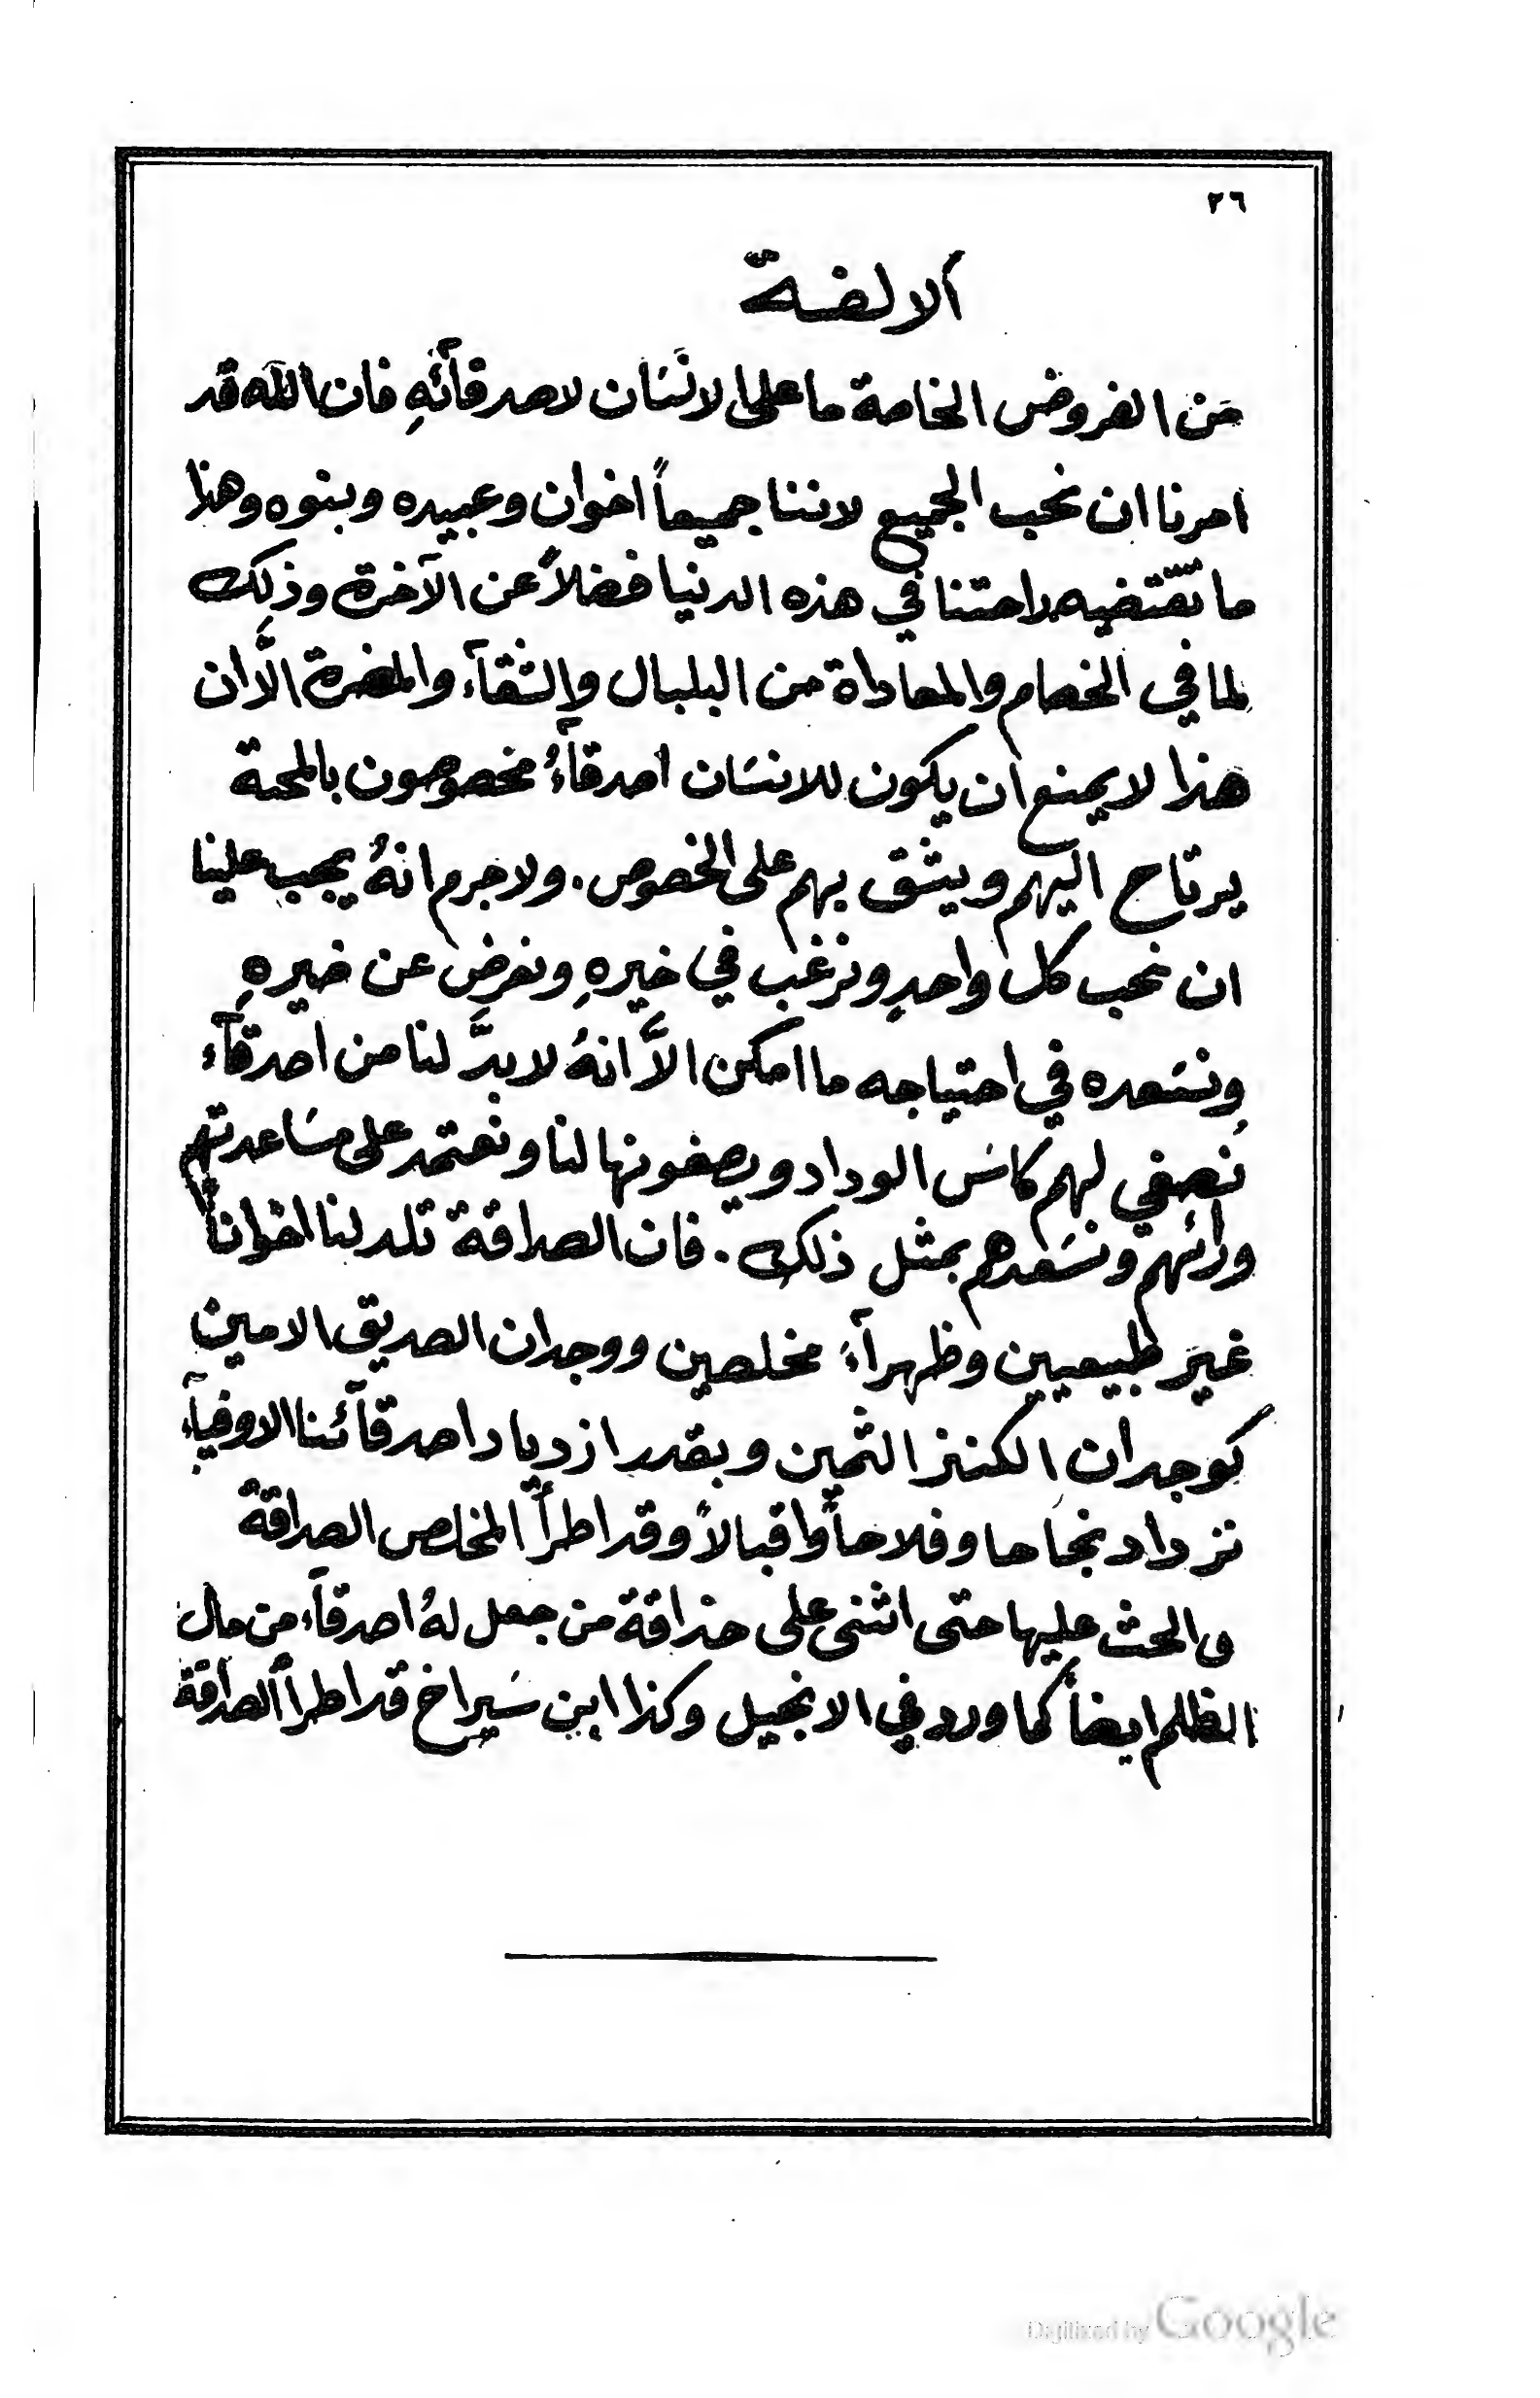 ٢٦
الالفة
من الفروض الخاصة ما على الانسَان لاصدقآئهِ فان الله قد
امرنا ان نحب الجميع لاننا جميعاً اخوان وعبيده وبنوه وهذا
ما تقتضيه راحتنا في هذه الدنيا فضلاً عن الآخرة وذلك
لما في الخصام والمعاداة من البلبال والشقآء والمضرة الَّا ان
هذا لا يمنع ان يكون للانسَان اصدقآءُ مخصوصون بالمحبة
يرتاح اليهم ويثق بهم على الخصوص. ولا جرم انهُ يجب علينا
ان نحب كل واحدٍ ونرغب في خيرهِ ونعرض عن ضيرهِ
ونسَعده في احتياجه ما امكن الاَّ انهُ لا بدَّ لنا من اصدقآء
نصفي لهم كاسَ الوداد ويصفونها لنا ونعتمد على مسَاعدتهم
ورائهم ونسَعدهم بمثل ذلك. فان الصداقة تلد لنا اخواناً
غير طبيعيين وظهرآءَ مخلصين ووجدان الصديق الامين
كوجدان الكنز الثمين وبقدر ازدياد اصدقآئنا الاوفيآء
نزداد نجاحا وفلاحاً واقبالاً وقد اطرأ المخلص الصداقةُ
والحث عليها حتى اثنى على حذاقة من جعل لهُ اصدقآء من مال
الظلم ايضاً كما ورد في الانجيل وكذا ابن سَيراخ قد اطرأ الصداقة
Digitized by Google